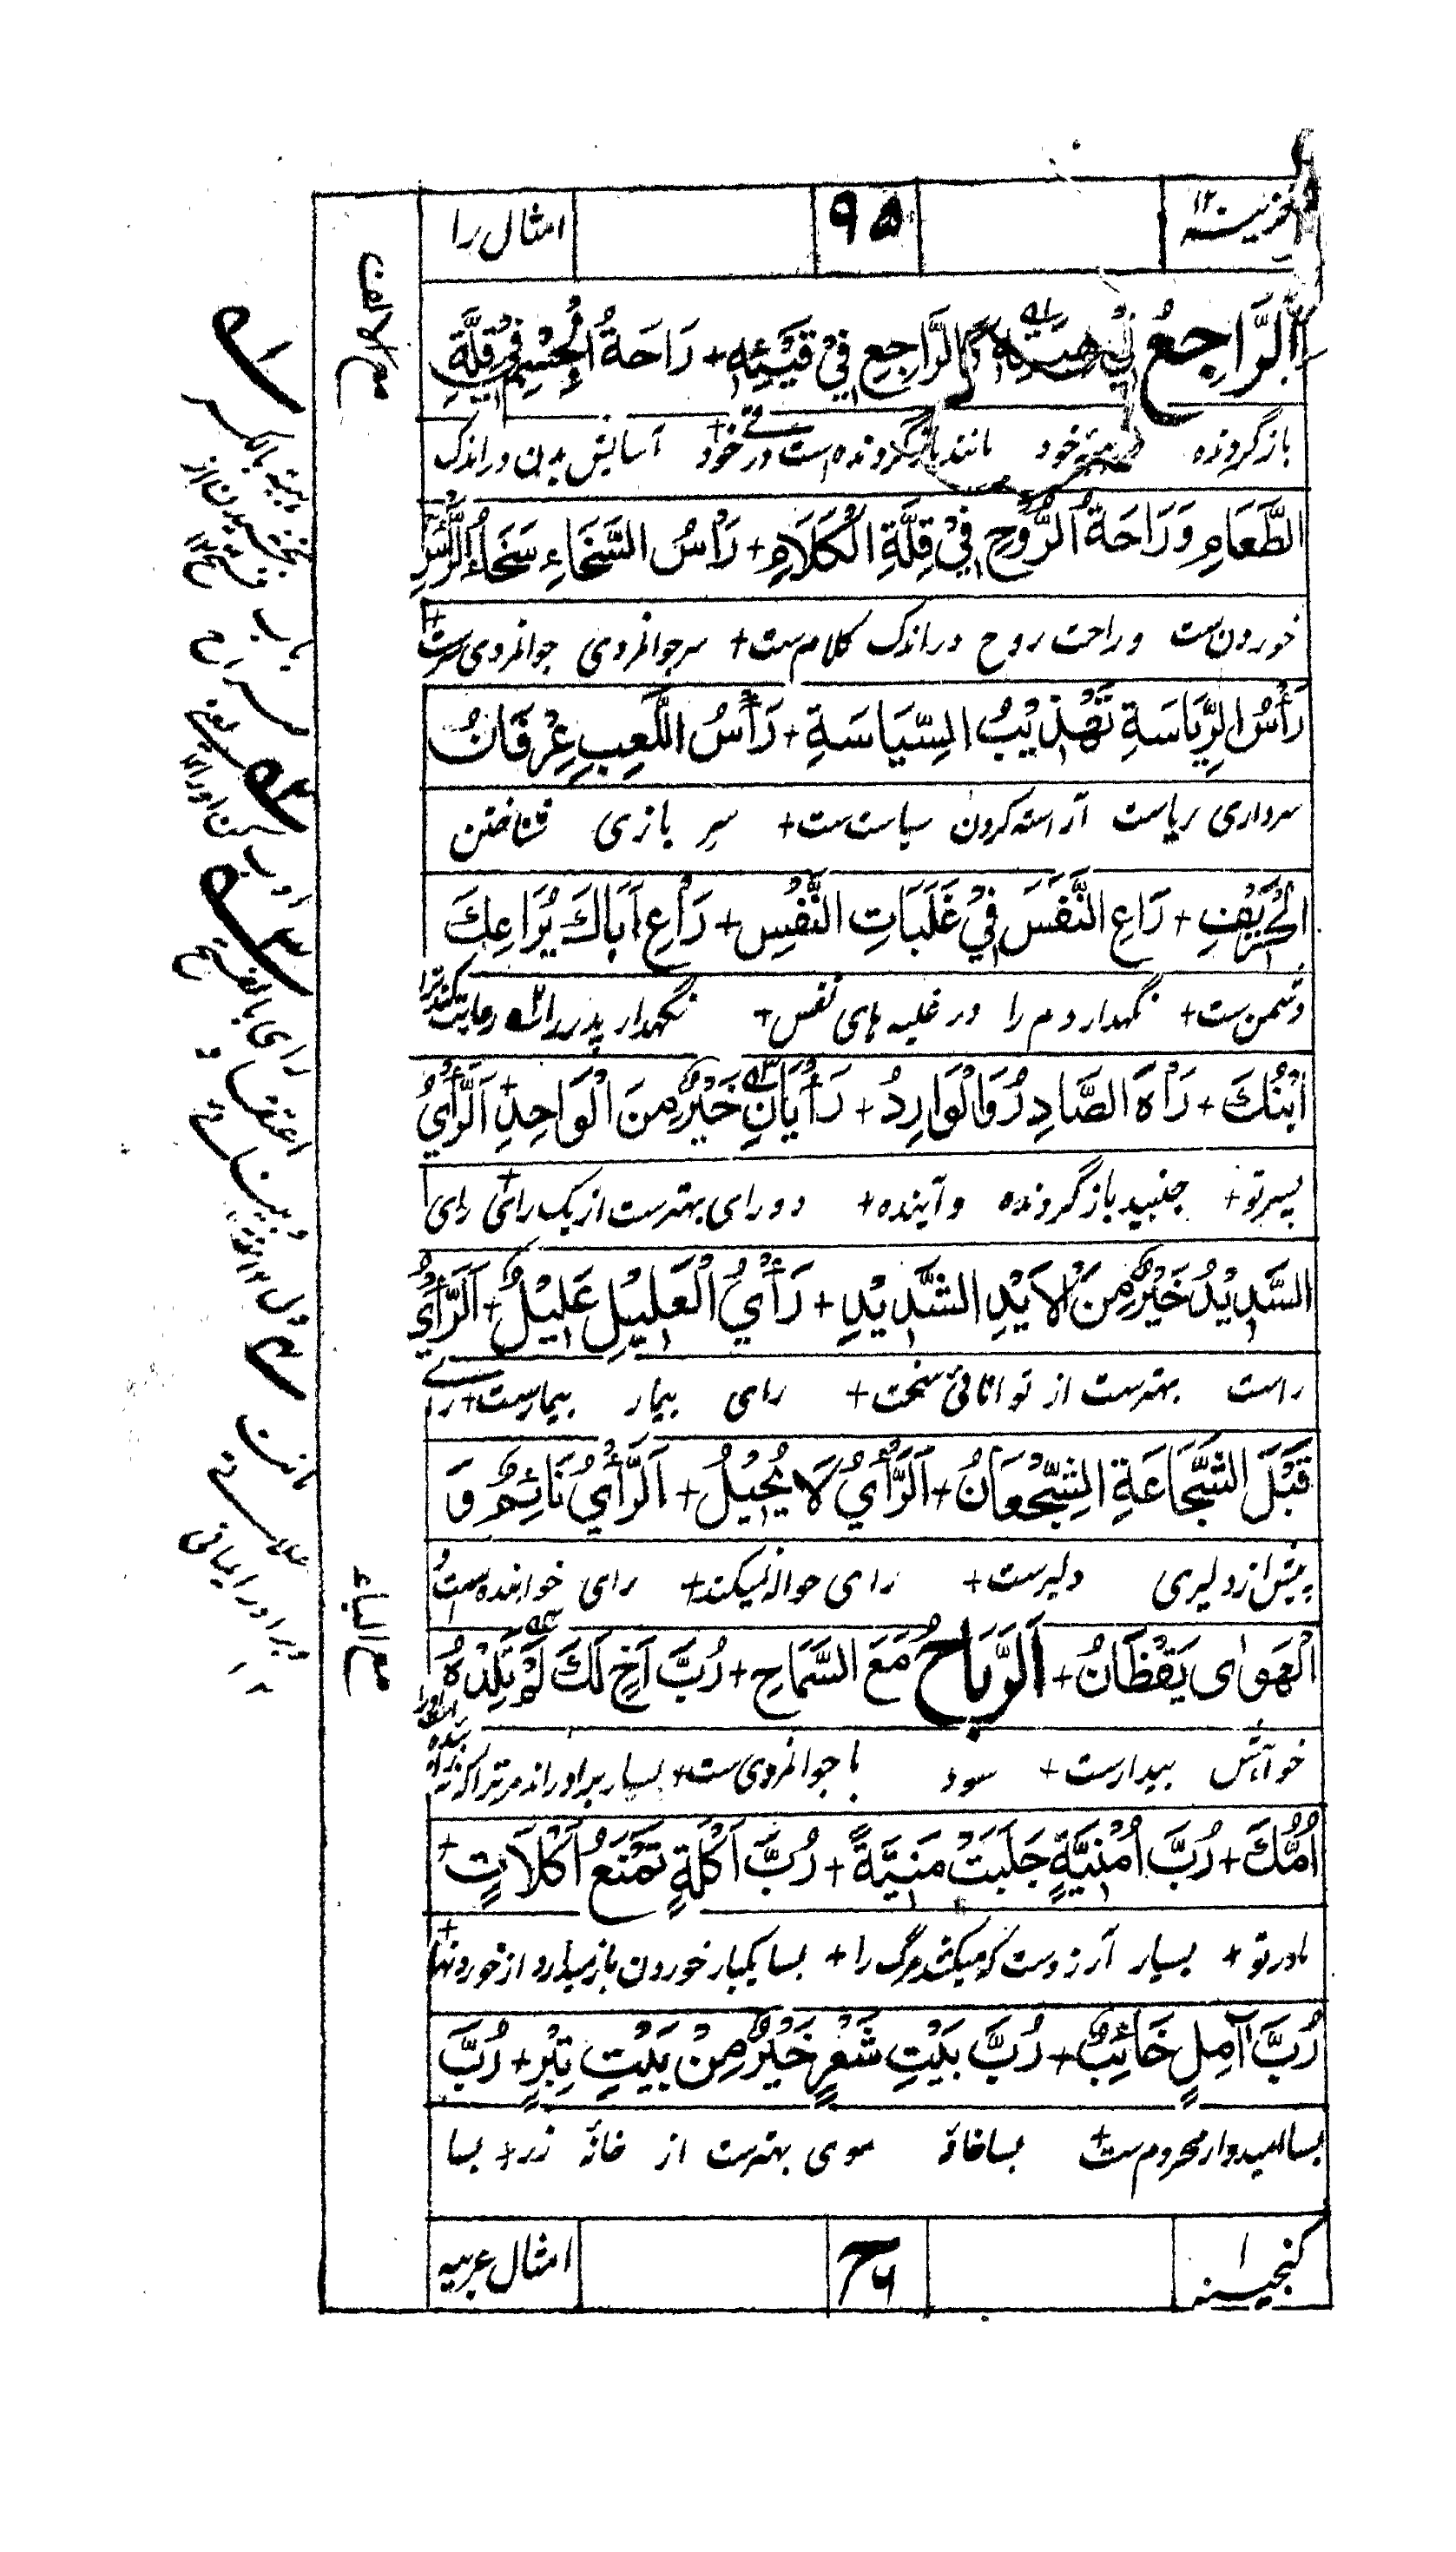 خزینه ۱۲
۹۵
امثال را
مع الالف
اَلرَّاجِعُ فِيْ هِبَتِهٖ كَالرَّاجِعِ فِيْ قَيْئِهٖ + رَاحَةُ الْجِسْمِ فِيْ قِلَّةِ
بازگرونده در هبهٔ خود مانند بازگرونده است در قے خود + آسایش بدن در اندک
الطَّعَامِ وَرَاحَةُ الرُّوْحِ فِيْ قِلَّةِ الْكَلَامِ + رَأْسُ السَّخَاءِ سَخَاءُ الرَّأْسِ
خوردن ست و راحت روح در اندک کلام ست + سر جوانمردی جوانمردی سرست +
رَأْسُ الرِّيَاسَةِ تَهْذِيْبُ السِّيَاسَةِ + رَأْسُ اللَّعِبِ عِرْفَانُ
سرداری ریاست آراسته کردن سیاست ست + سر بازی شناختن
الْحَرِيْفِ + رَاعِ النَّفَسَ فِيْ غَلَبَاتِ النَّفْسِ + رَاعِ اَبَاكَ يُرَاعِكَ
دشمن ست + نگهدار دم را در غلبه های نفس + نگهدار پدر را رعایت کند ترا
اِبْنُكَ + رَأَهُ الصَّادِرُ وَالْوَارِدُ + رَأْيَانِ خَيْرٌ مِنَ الْوَاحِدِ + اَلرَّأْيُ
پسر تو + جنبید بازگرونده و آینده + دو رای بهترست از یک رای + رای
السَّدِيْدُ خَيْرٌ مِنَ الْاَيْدِ الشَّدِيْدِ + رَأْيُ الْعَلِيْلِ عَلِيْلٌ + اَلرَّأْيُ
راست بهترست از توانائی سخت + رای بیمار بیمارست + رائے
قَبْلَ الشَّجَاعَةِ الشَّجْعَانُ + اَلرَّأْيُ لَا يُحِيْلُ + اَلرَّأْيُ نَائِمٌ وَ
پیش از دلیری دلیرست + رای حواله نمیکند + رای خوابنده ست و
مع الباء
الْهَوٰى يَقْظَانُ + اَلرَّبَاحُ مَعَ السَّمَاحِ + رُبَّ اَخٍ لَكَ لَمْ تَلِدْهُ
خواهش بیدارست + سود با جوانمردی ست + بسیار برادراند مر ترا که نزاده
اُمُّكَ + رُبَّ اُمْنِيَّةٍ جَلَبَتْ مَنِيَّةً + رُبَّ اَكْلَةٍ تَمْنَعُ اَكَلَاتٍ +
مادر تو + بسیار آرزوست که میکشد مرگ را + بسا یکبار خوردن باز میدارد از خوردنها +
رُبَّ اٰمِلٍ خَائِبٌ + رُبَّ بَيْتِ شَعْرٍ خَيْرٌ مِنْ بَيْتِ تِبْرٍ + رُبَّ
بسا امیدوار محروم ست + بسا خانهٔ موی بهترست از خانهٔ زر + بسا
گنجینه ۱
امثال عربیه